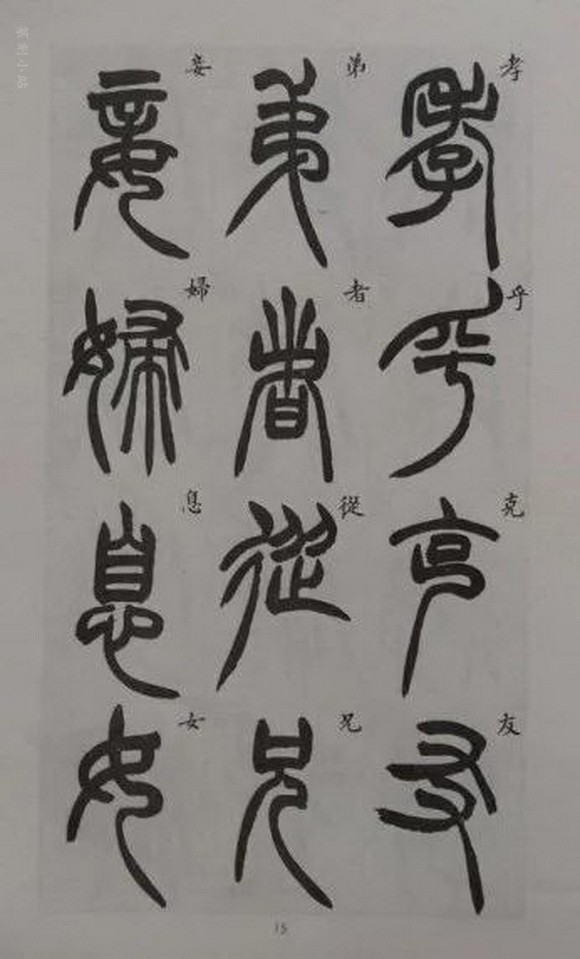 孝乎克友
弟者從兄
妾婦息女
15